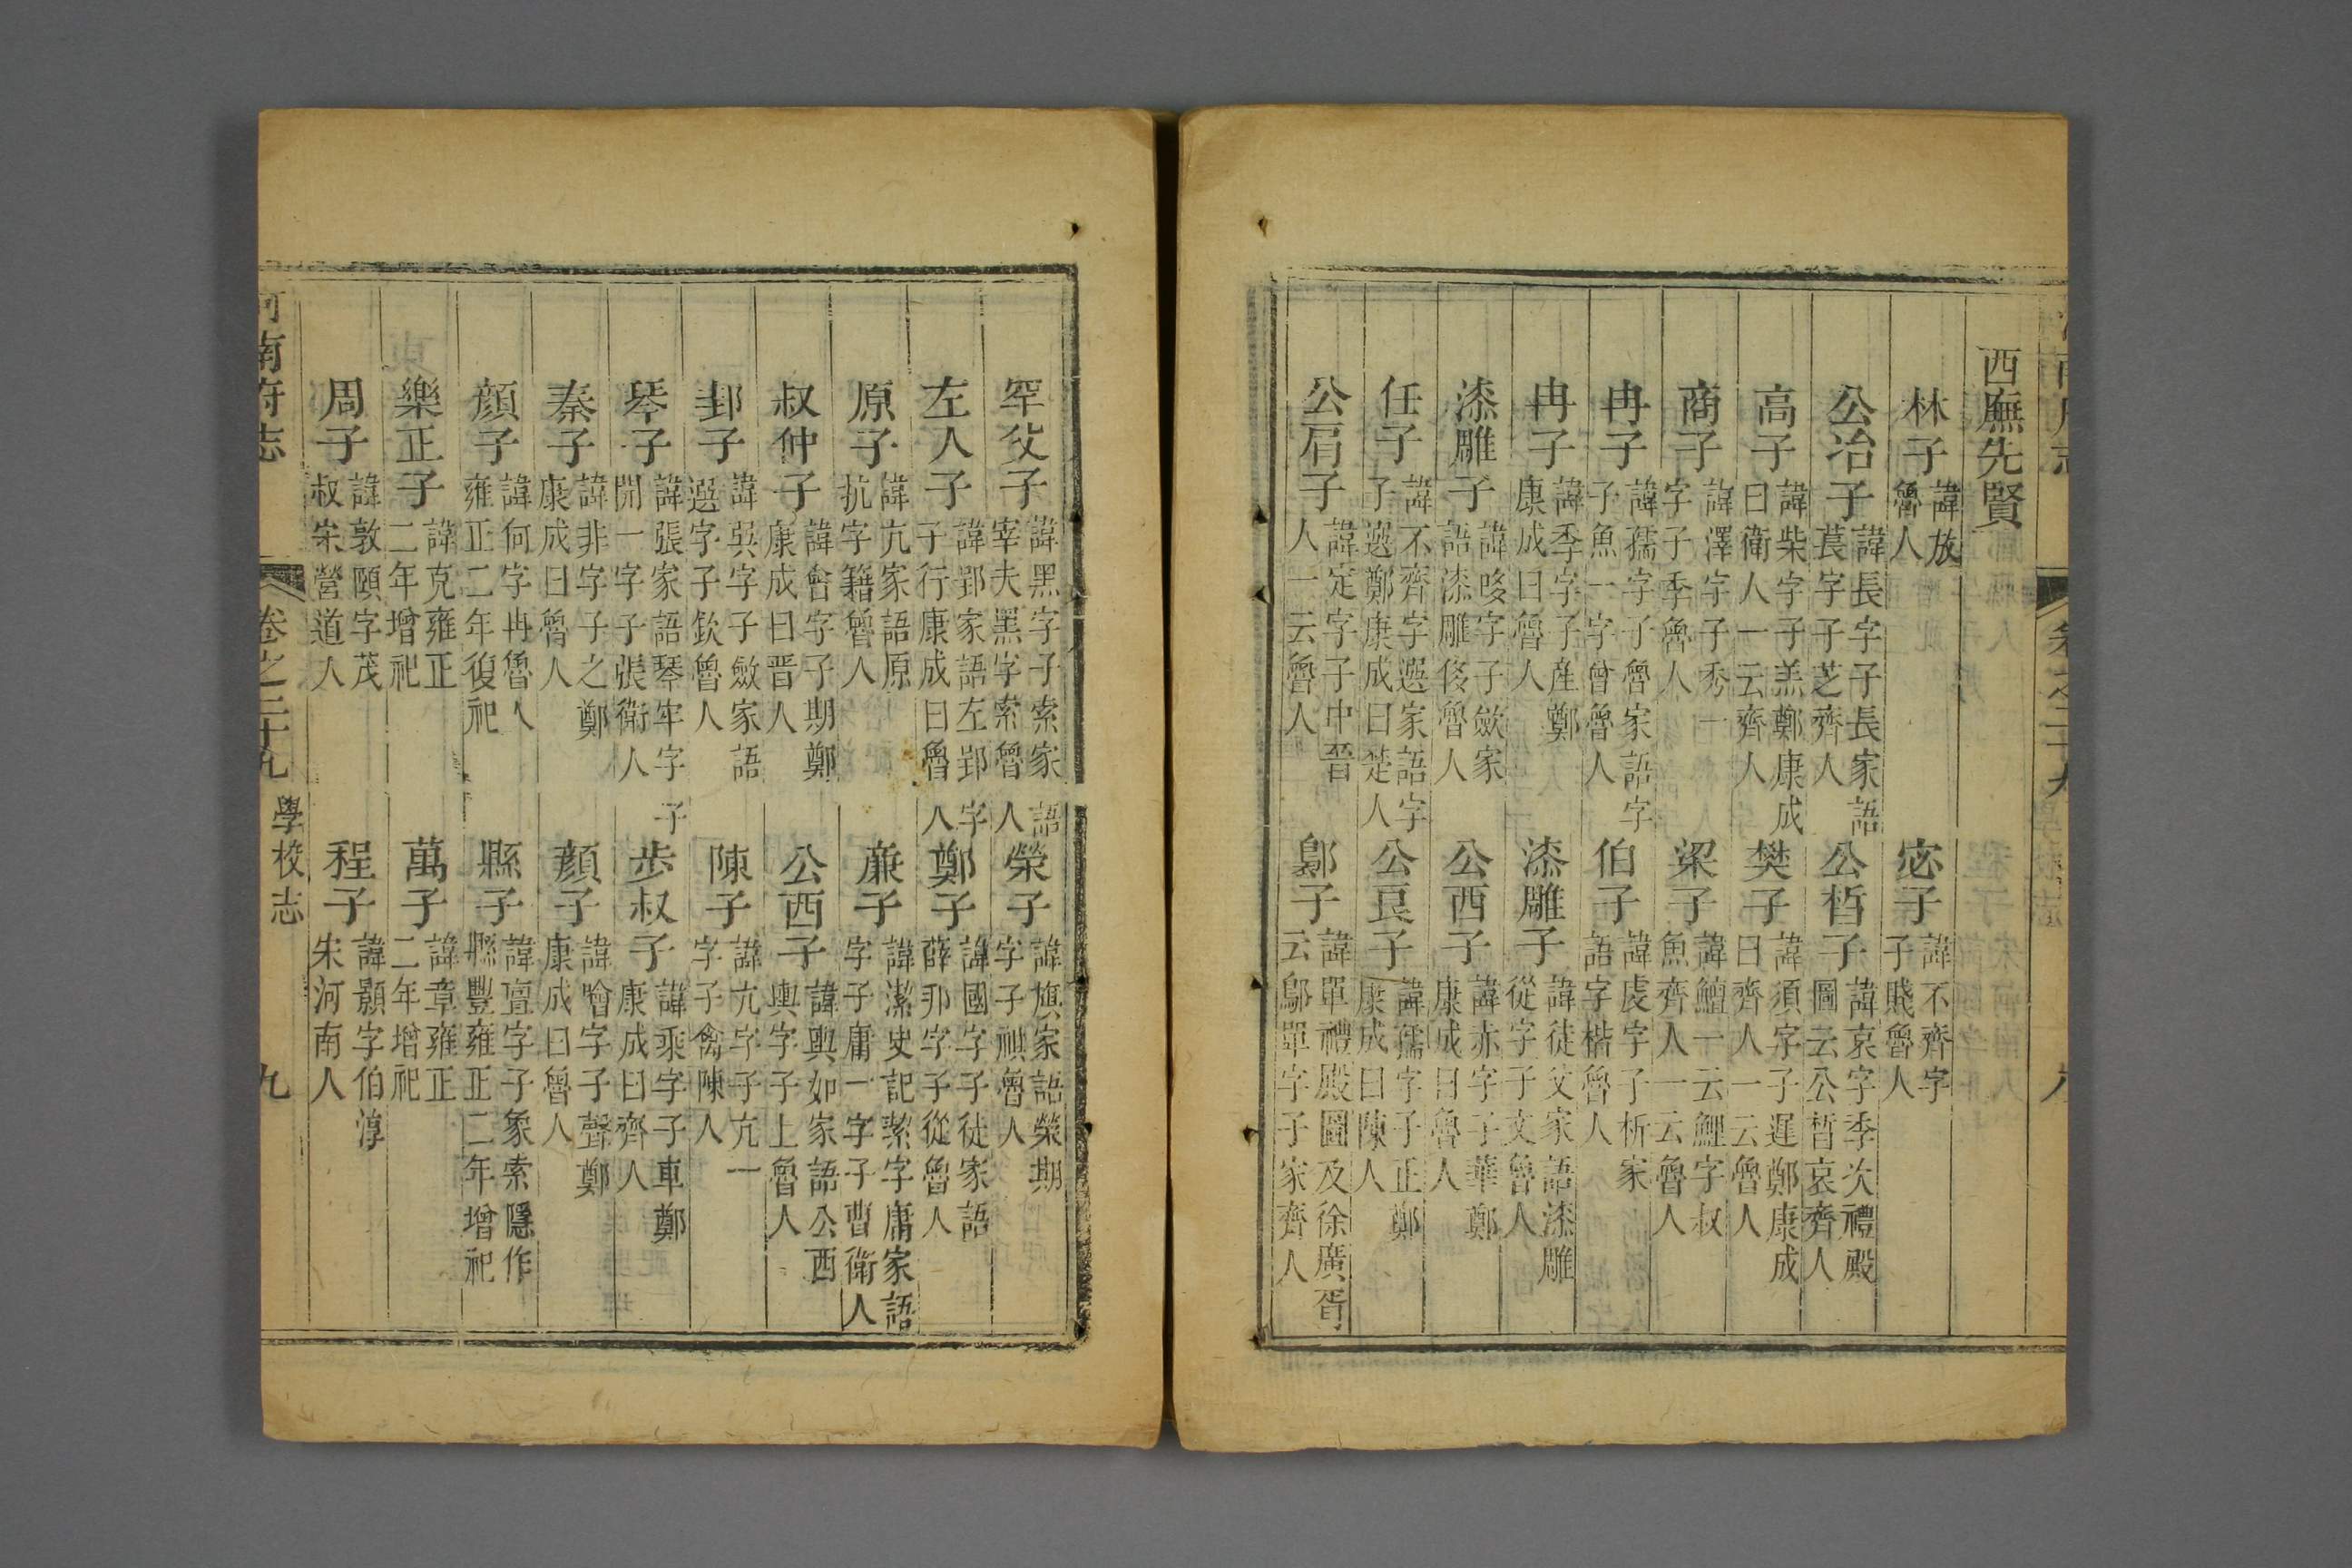 西廡先賢
林子 諱放魯人 宓子 諱不齊字子賤魯人
公冶子 諱長字子長家語萇字子芝齊人 公晳子 諱哀字季次禮殿圖云公晳哀齊人
高子 諱柴字子羔鄭康成曰衛人一云齊人 樊子 諱須字子遲鄭康成曰齊人一云魯人
商子 諱澤字子秀一字子季魯人 梁子 諱鱣一云鯉字叔魚齊人一云魯人
冉子 諱孺字子魯家語字子魚一字曾魯人 伯子 諱虔字子析家語字楷魯人
冉子 諱季字子產鄭康成曰魯人 漆雕子 諱徒父家語漆雕從字子文魯人
漆雕子 諱哆字子斂家語漆雕侈魯人 公西子 諱赤字子華鄭康成曰魯人
任子 諱不齊字選家語字子選鄭康成曰楚人 公良子 諱孺字子正鄭康成曰陳人
公肩子 諱定字子中晉人一云魯人 鄡子 諱單禮殿圖及徐廣胥云鄔單字子家齊人
罕父子 諱黑字子索家語宰夫黑字索魯人 榮子 諱旗家語榮期字子祺魯人
左人子 諱郢家語左郢字子行康成曰魯人 鄭子 諱國字子徒家語薛邦字子從魯人
原子 諱亢家語原抗字籍魯人 亷子 諱潔史記絜字庸家語字子庸一字子曹衛人
叔仲子 諱會字子期鄭康成曰晋人 公西子 諱輿如家語公西輿字子上魯人
邽子 諱巽字子斂家語選字子欽魯人 陳子 諱亢字子亢一字子禽陳人
琴子 諱張家語琴牢字子開一字子張衛人 步叔子 諱乘字子車鄭康成曰齊人
秦子 諱非字子之鄭康成曰魯人 顏子 諱噲字子聲鄭康成曰魯人
顏子 諱何字冉魯人雍正二年復祀 縣子 諱亶字子象索隱作縣豐雍正二年增祀
樂正子 諱克雍正二年增祀 萬子 諱章雍正二年增祀
周子 諱敦頤字茂叔宋營道人 程子 諱顥字伯淳宋河南人
河南府志 卷之二十九 學校志 九